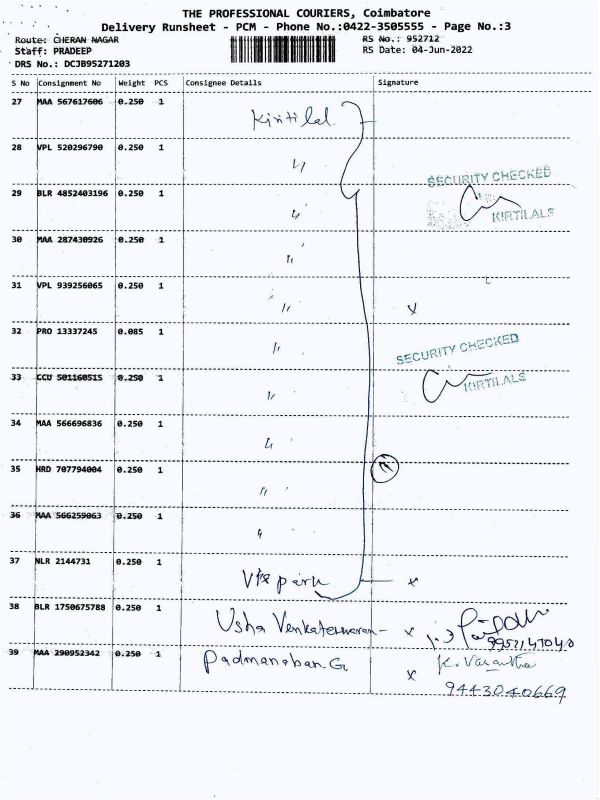 THE PROFESSIONAL COURIERS, Coimbatore
Delivery Runsheet - PCM - Phone No.:0422-3505555 - Page No.:3
Route: CHERAN NAGAR RS No.: 952712
Staff: PRADEEP RS Date: 04-Jun-2022
DRS No.: DCJB95271203
S No Consignment No Weight PCS Consignee Details Signature
27 MAA 567617606 0.250 1 Kirtilal
28 VPL 520296790 0.250 1 "
SECURITY CHECKED
29 BLR 4852403196 0.250 1 "
KIRTILALS
30 MAA 287430926 0.250 1 "
31 VPL 939256065 0.250 1 " x
32 PRO 13337245 0.085 1 "
SECURITY CHECKED
33 CCU 501160515 0.250 1 "
KIRTILALS
34 MAA 566696836 0.250 1 "
35 HRD 707794004 0.250 1 "
36 MAA 566259063 0.250 1 "
37 NLR 2144731 0.250 1 park x
38 BLR 1750675788 0.250 1 Usha Venkateswaran - x
39 MAA 290952342 0.250 1 Padmanaban.G. x K. Vasantha
9443040669